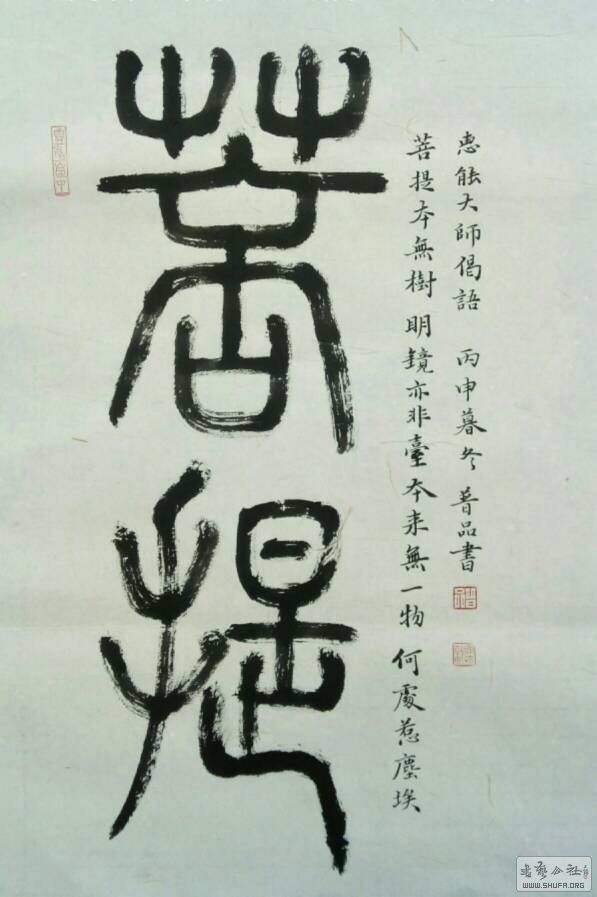 菩提
菩提本無樹明鏡亦非臺本来無一物何處惹塵埃
惠能大師偈語 丙申暮冬 普品書
书艺公社
WWW.SHUFA.ORG